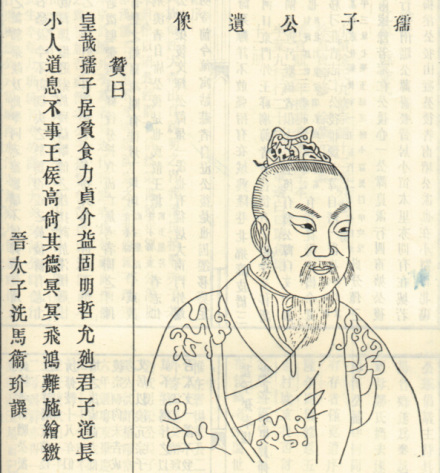 孺子公遺像
贊曰
皇哉孺子居貧食力貞介益固明哲允廸君子道長
小人道息不事王侯高尙其德冥冥飛鴻難施繒繳
晉太子洗馬衞玠譔